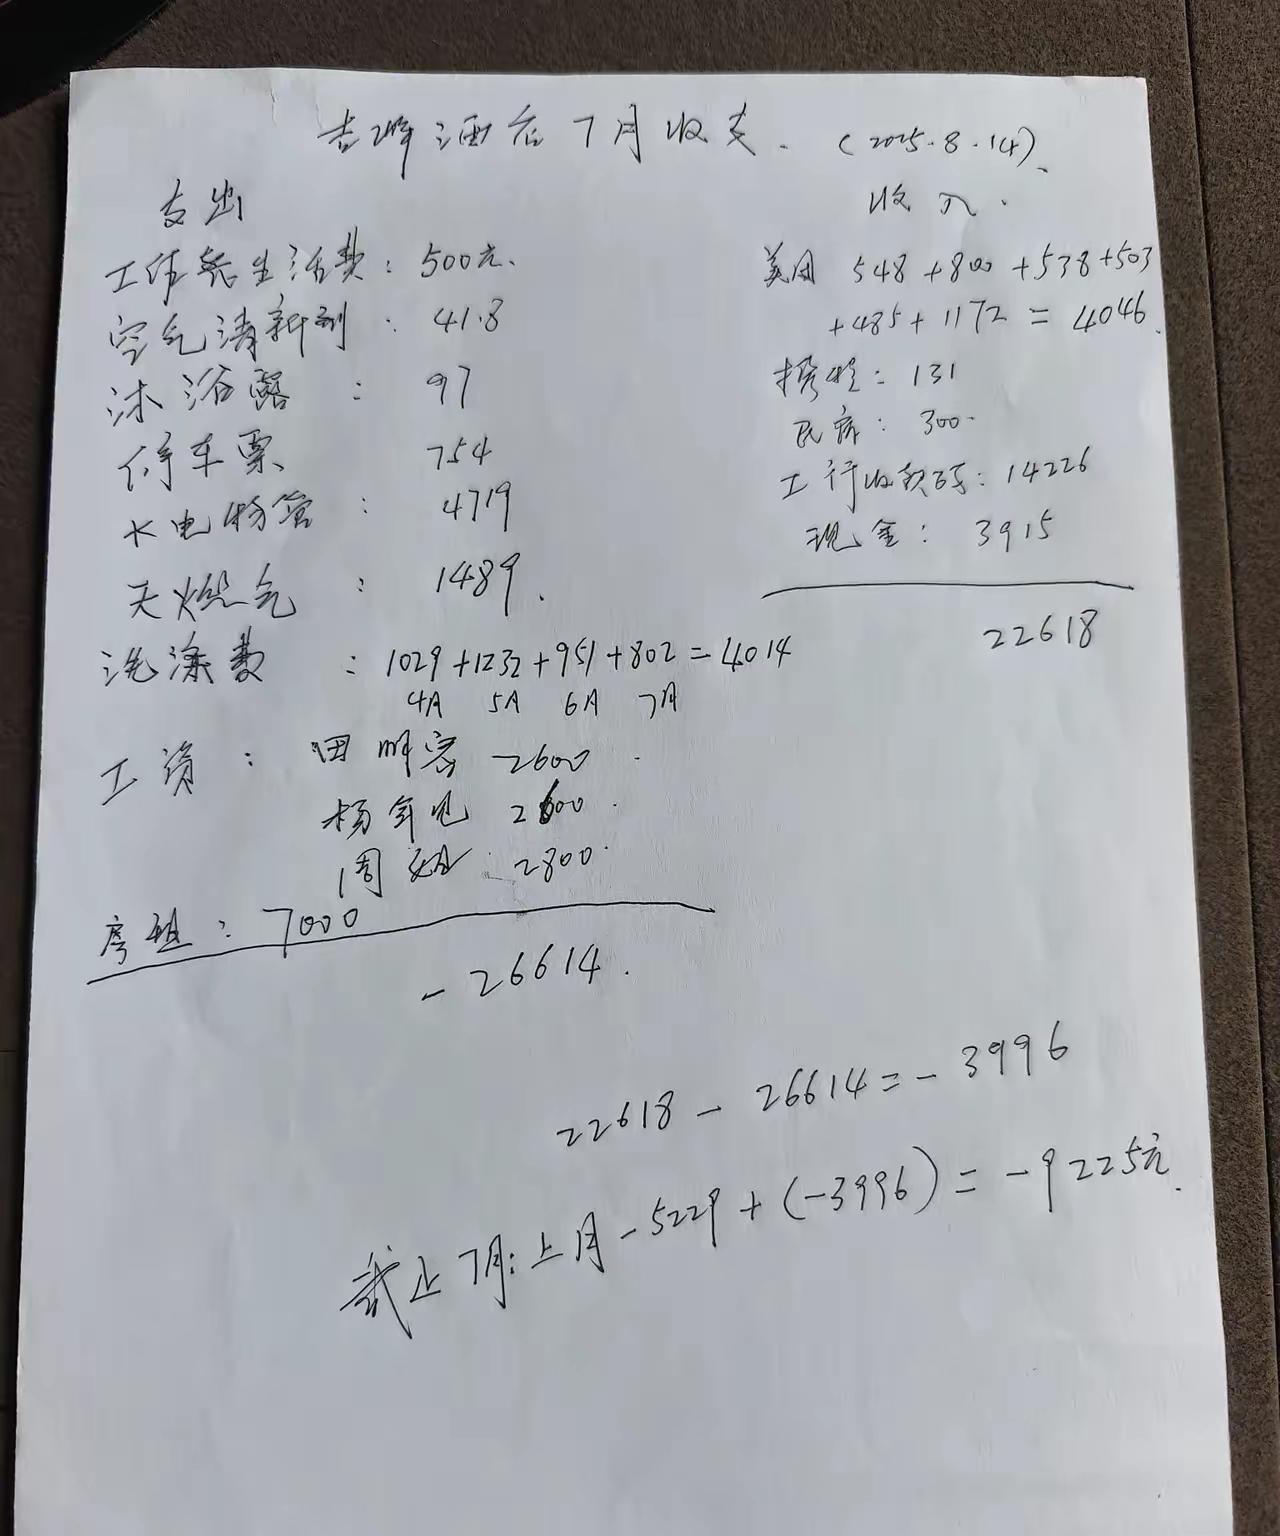 吉峰酒店7月收支. (2025.8.14).
支出
工作餐生活费: 500元.
空气清新剂: 41.8
沐浴露: 97
停车票 754
水电物管: 4719
天燃气: 1489.
洗涤费: 1029+1232+951+802=4014
4月 5月 6月 7月
工资: 田 2600.
杨 2600.
周姐 2800.
房租: 7000
-26614.
收入.
美团 548+800+538+503
+485+1172=4046.
携程: 131
民宿: 300.
工行收款码: 14226
现金: 3915
22618
22618-26614=-3996
截止7月:上月-5229+(-3996)=-9225元.